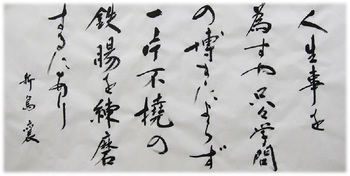 人生事を
為すや只々学問
の博きによらず
一片不撓の
鉄腸を練磨
するにあり
新島襄